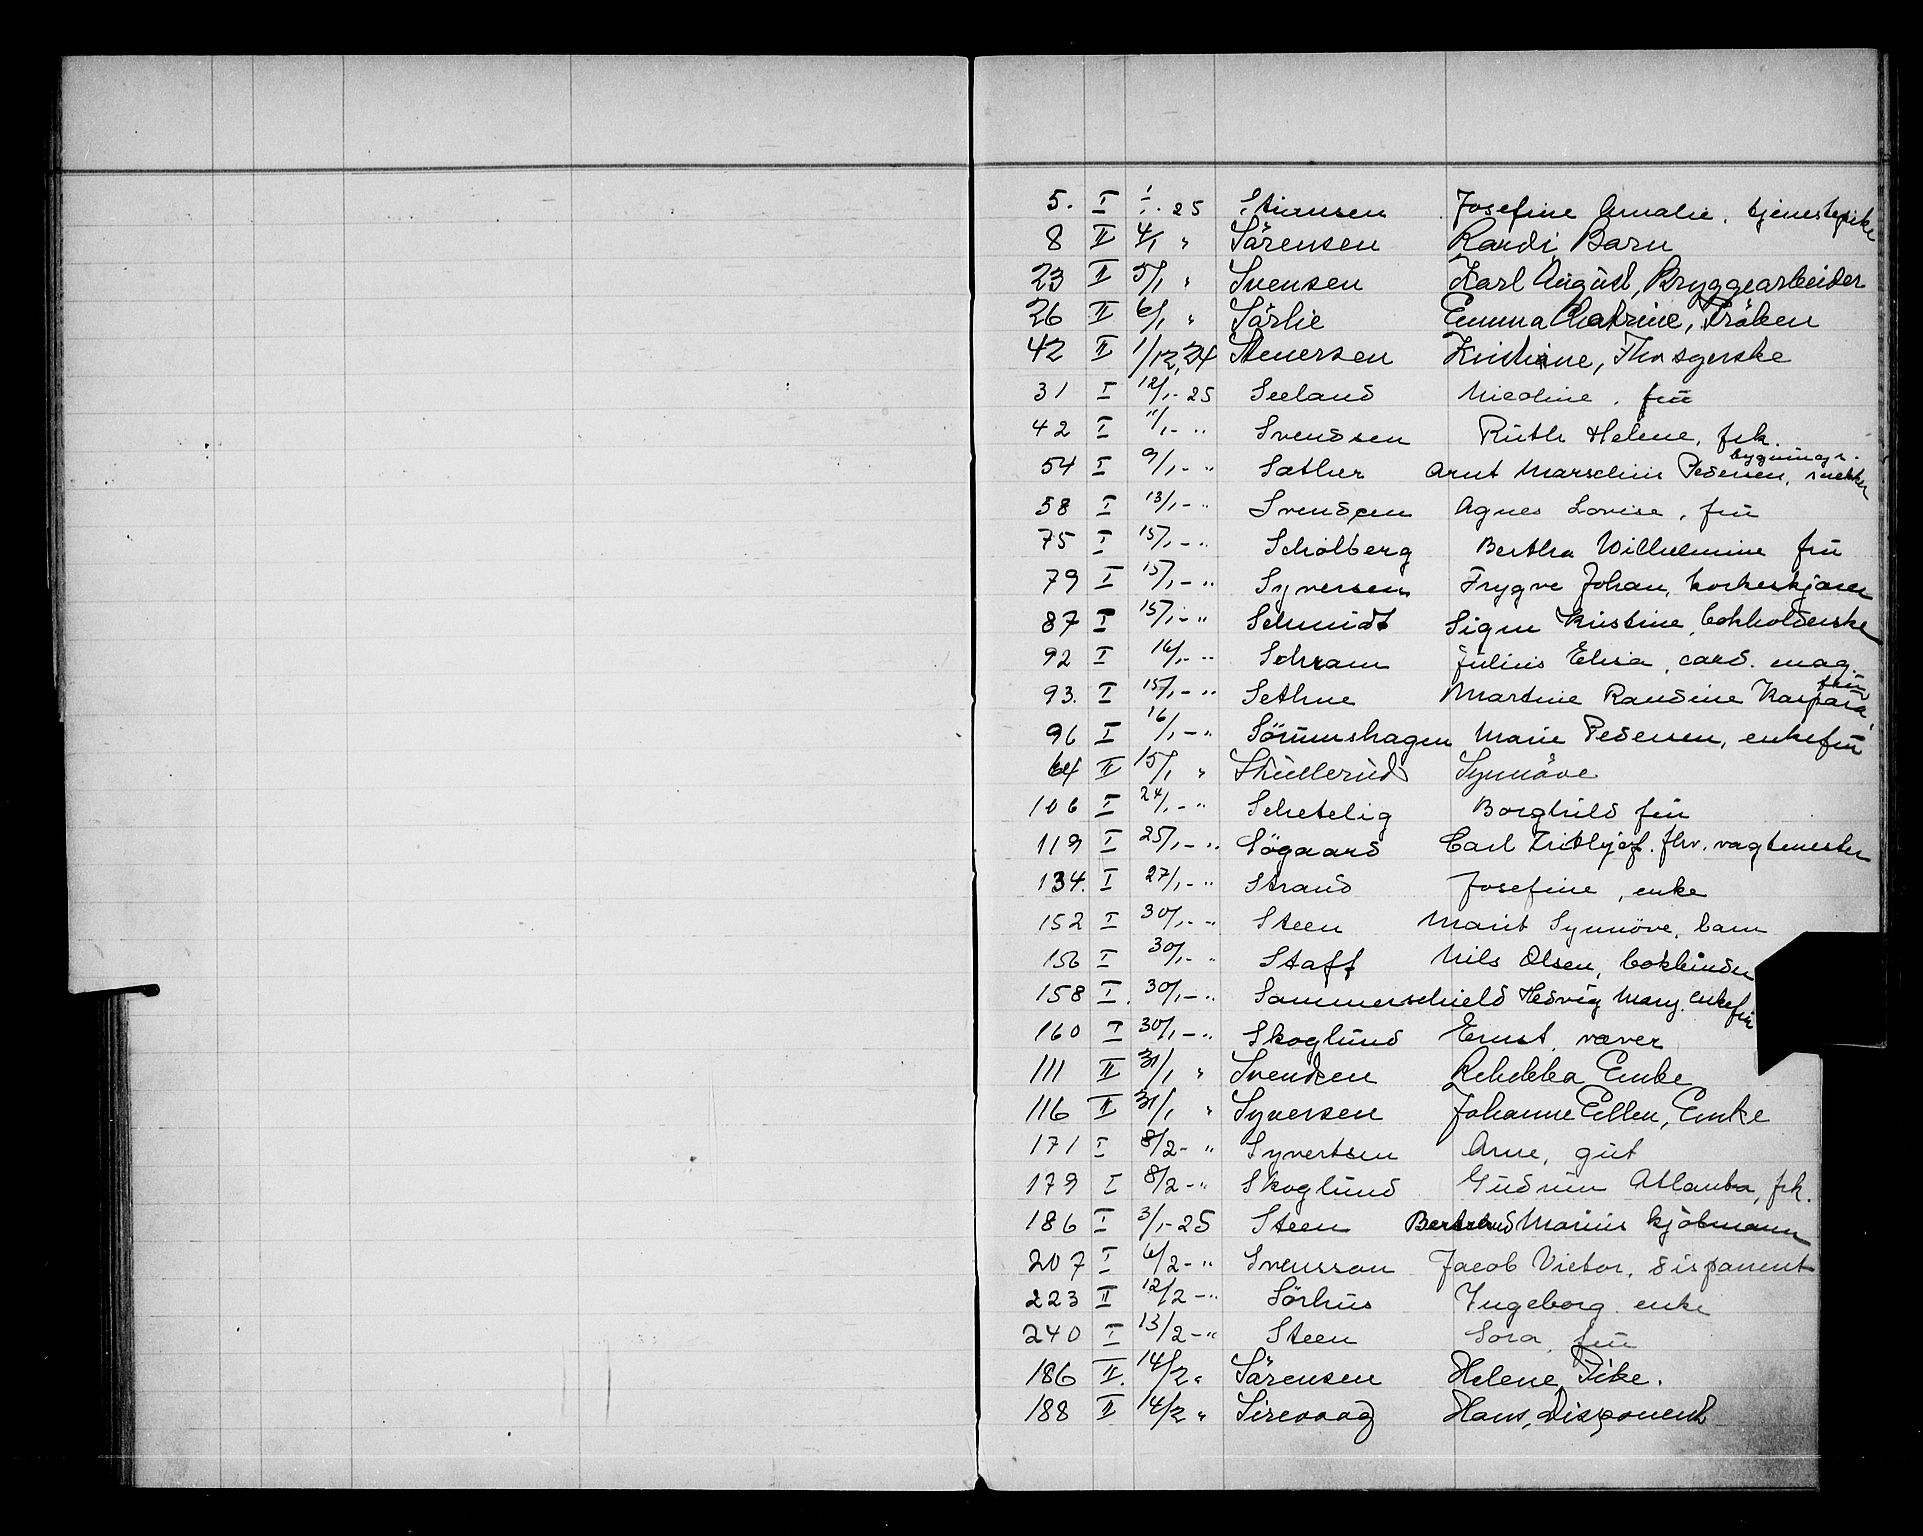 5. I 1/1. 25 Stiansen Josefine Amalie, tjenestepike
8 II 4/1 " Sörensen Randi, Barn
23 II 5/1 " Svensen Karl August, Bryggearbeider
26 II 6/1 " Sörlie Emma Catrine, Fröken
42 II 1/12.24 Stenersen Kristine, Fhv syerske
31 I 12/1-25 Seeland Nicoline, frü
42 I 11/1- " Svendsen Rüth Helene, frk.
54 I 9/1- " Sæther Arnt Marselius Pedersen, bygningssnekker
58 I 13/1- " Svendsen Agnes Lovise, frü
75 I 15/1- " Schölberg Bertha Wilhelmine frü
79 I 15/1- " Syversen Trygve Johan, korkeskjærer
87 I 15/1- " Schmidt Signe Kristine, bokholderske
92 I 16/1- " Schram Julius Elisa, cand. mag.
93. I 15/1- " Sethne Martine Randine Kaspara, frü
96 I 16/1- " Sörumshagen Marie Pedersen, enkefrü
64 II 15/1 " Skullerud Synnöve
106 I 24/1- " Schetelig Borghild frü
119 I 25/1- " Søgaard Carl Frithjof. fhv. vagtmester
134. I 27/1- " Strand Josefine, enke
152 I 30/1- " Steen Marit Synnöve, barn
156 I 30/1- " Staff Nils Olsen, bokbinder
158 I. 30/1- " Sommerschield Hedvig Mary. enkefrü
160 I 30/1- " Skoglünd Ernst, væver
111 II 31/1 " Svendsen Rebekka Enke
116 II 31/1 " Syversen Johanne Ellen, Enke
171 I 8/2- " Syvertsen Arne, güt
179 I 8/2- " Skoglünd Güdrün Atlanta, frk.
186 I 3/1-25 Steen Bertrand Marius kjöbmann
207 I 6/2- " Svensson Jacob Victor, disponent
223 II 12/2- " Sörhus Ingeborg enke
240 I 13/2- " Steen Sora, frü
186 II. 14/2 " Sörensen Helene, Pike.
188 II 14/2 " Sirevaag Hans, Disponent